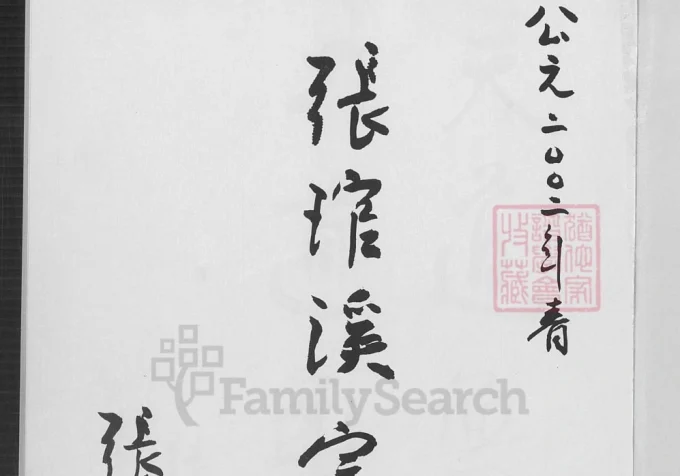 公元二〇〇二年春
張琯溪宗
張
FamilySearch